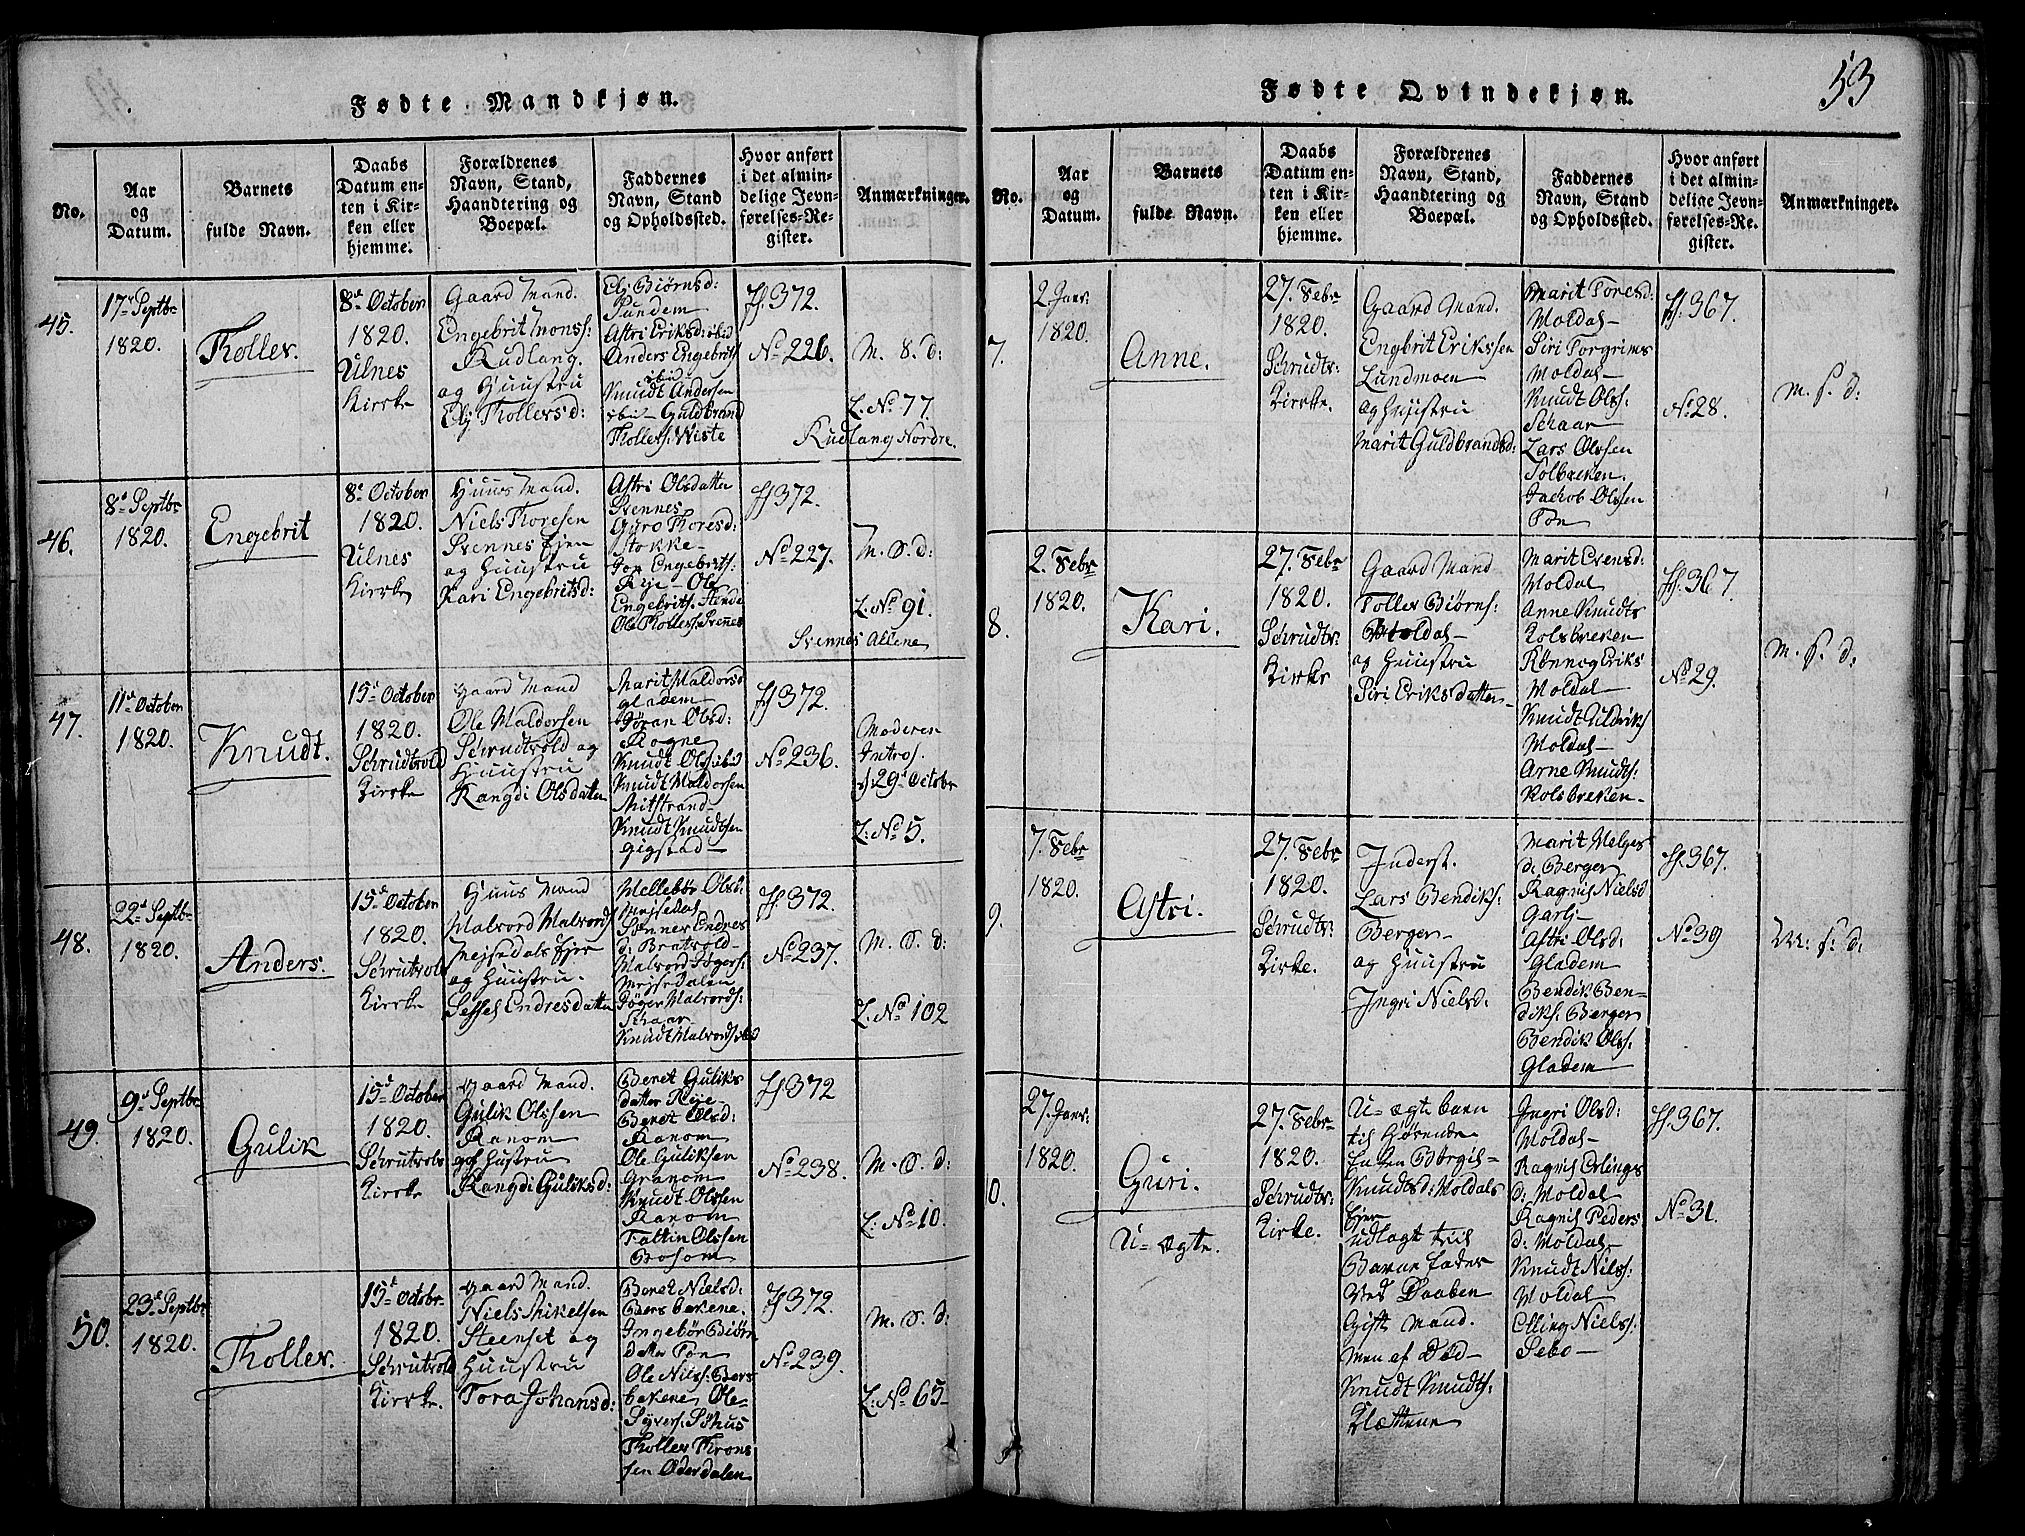 53
Fødte Mandkjøn.
No.
Aar
og
Datum.
Barnets
fulde Navn.
Daabs
Datum en-
ten i Kir-
ken eller
hjemme.
Forældrenes
Navn, Stand,
Haandtering og
Boepæl.
Faddernes
Navn, Stand
og Opholdssted.
Hvor anført
i det almin-
delige Jevn-
førelses-Re-
gister.
Anmærkninger.
45.
17de Septbr
1820.
Tholler.
8de October
1820.
Ulnes
Kirke
Gaard Mand.
Engebrit Mons:
Rudlang
og Huustru
Eli Thollersd:
Eli Biørnsd:
Sundem
Astri Eriksd: ibid
Anders Engebrits
ibid
Knudt Andersen
ibid - Guldbrand
Thollers: Wiste
ff 372.
No 226.
M. S. d:
L. No 77.
Rudlang Nordre.
46.
8de Septbr
1820.
Engebrit
8de October
1820.
Ulnes
Kirke
Huus Mand.
Niels Thoresen
Svennes Ejen
og Huustru
Kari Engebritsd:
Astri Olsdatter
Svennes
Guro Thoresd:
Stokke
Engebrits:
Rye - Ole
Engebrits:
Ole Thollers: Svenes
ff 372.
No 227.
M. S. d:
L. No 91.
Svennes Allene
47.
11de October
1820.
Knudt.
15de October
1820.
Schrudtvold
Kirke
Gaard Mand
Ole Maldorsen
Schrudtvold og
Huustru
Rangdi Olsdatter
Marit Maldorsd
Gladem
Gøran Olsd:
Rogne
Knudt Ols: ibid
Knudt Maldorsen
Mitstrand
Knudt Knudtsen
Gigstad
ff 372.
No 236.
Moderen
Introd.
d. 29de October
L: No 5.
48.
22de Septbr
1820.
Anders.
15de October
1820.
Schrutvold
Kirke
Huus Mand
Malvord Malvords
Mejsedals Ejer
og Huustru
Sessel Endresdatter
Mellebør Olsd:
Mejsedal
Sønnev Endres
d: Bratvold
Malvord Røgers:
Mejsedalen
Røger Malvords:
Schaar
Knudt Malvords: ibid
ff 372.
No 237.
M. S. d:
L: No 102
49.
9de Septbr
1820.
Gulik
15de October
1820.
Schrutvold
Kirke
Gaard Mand.
Gulik Olssen
Ranom
og Hustru
Rangdi Guliksd:
Beret Guliks
datter Rye
Beret Olsd:
Ranom
Ole Guliksen
Granom
Knudt Olssen
Ranom
Tattin Olssen
Bosom
ff 372
No 238.
M. S. d:
L: No 10.
50.
23de Septbr
1820.
Tholler.
15de Octobr.
1820.
Schrutvold
Kirke.
Gaard Mand.
Niels Mikelsen
Steenset og
Huustru
Tora Johansd:
Beret Nielsd:
Bersbekene.
Ingebør Biørns
datter Tøn
Ole Nils: Bers
bekene Ole
Syvers: Søhus
Tholler Throns
sen Øderdalen
ff 372.
No 239.
M. S. d:
L: No 65
Fødte Qvindekjøn.
No.
Aar
og
Datum.
Barnets
fulde Navn.
Daabs
Datum en-
ten i Kir-
ken eller
hjemme.
Forældrenes
Navn, Stand,
Haandtering og
Boepæl.
Faddernes
Navn, Stand
og Opholdssted.
Hvor anført
i det almin-
delige Jevn-
førelses-Re-
gister.
Anmærkninger.
7.
2. Janr:
1820.
Anne.
27. Febr
1820.
Schrudts:
Kirke.
Gaard Mand.
Engbrit Erikssen
Lundmoen
og Huustru
Marit Guldbrandsd:
Marit Toresd:
Moldal
Siri Torgrims
Moldal
Knudt Ols:
Schaar
Lars Olssen
Tolbreken.
Jachob Olssen
Tøn
ff: 367.
No 28.
M. S. d:
8.
2. Febr
1820.
Kari.
27. Febr
1820.
Schrudts:
Kirke
Gaard Mand
Toller Biørns:
Moldal
og Huustru
Siri Eriksdatter
Marit Evensd:
Moldal
Anne Knudts
Kolsbreken
Rønnog Eriks
Moldal
Knudt Uldriks
Moldal
Arne Knudts:
Kolsbreken
ff. 367.
No 29.
M. S. d:
9.
7. Febr
1820.
Astri.
27. Febr
1820.
Schrudts:
Kirke.
Inderst.
Lars Bendiks:
Berger
og Huustru
Ingri Nielsd:
Marit Helges
d: Berger
Ragnil Nielsd
Garli
Astri Olsd:
Gladem
Bendik Ben-
diks: Berger
Bendik Ols:
Gladem
ff. 367.
No 39
M: S: d:
0.
27. Janr:
1820.
Guri.
U-ægte.
27. Febr
1820.
Schrudts:
Kirke.
U-ægte barn
til Hørende
Enken Børgil
Knudtsd: Moldals
Ejer
udlagt til
Barne Fader
ved Daaben
Gift Mand.
Men af Død
Knudt Knudts:
Klættene
Ingri Olsd:
Moldal
Ragnil Erlings
d: Moldal
Ragnil Peders
d: Moldal
Knudt Nils:
Moldal
Elling Niels:
Sebo
ff 367.
No 31.